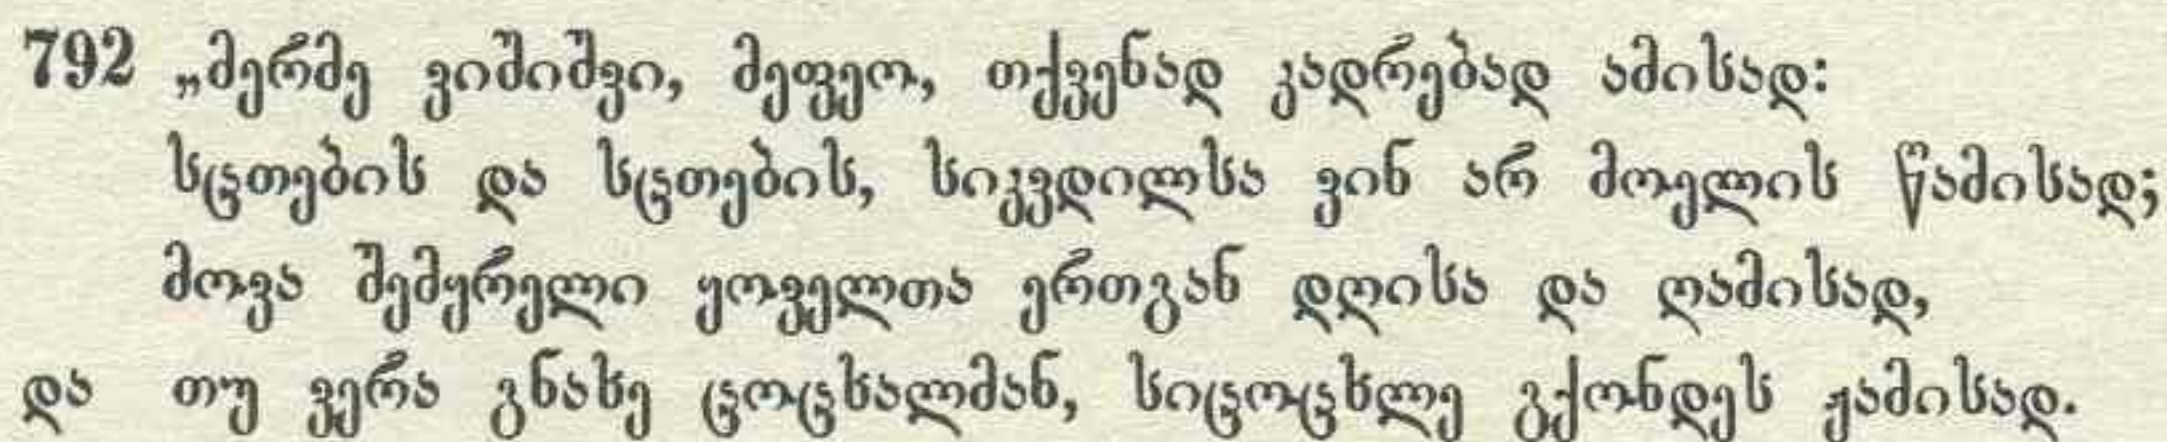 792 „მერმე ვიშიშვი, მეფეო, თქვენად კადრებად ამისად:
სცთების და სცთების, სიკვდილსა ვინ არ მოელის წამისად;
მოვა შემყრელი ყოველთა ერთგან დღისა და ღამისად,
და თუ ვერა გნახე ცოცხალმან, სიცოცხლე გქონდეს ჟამისად.